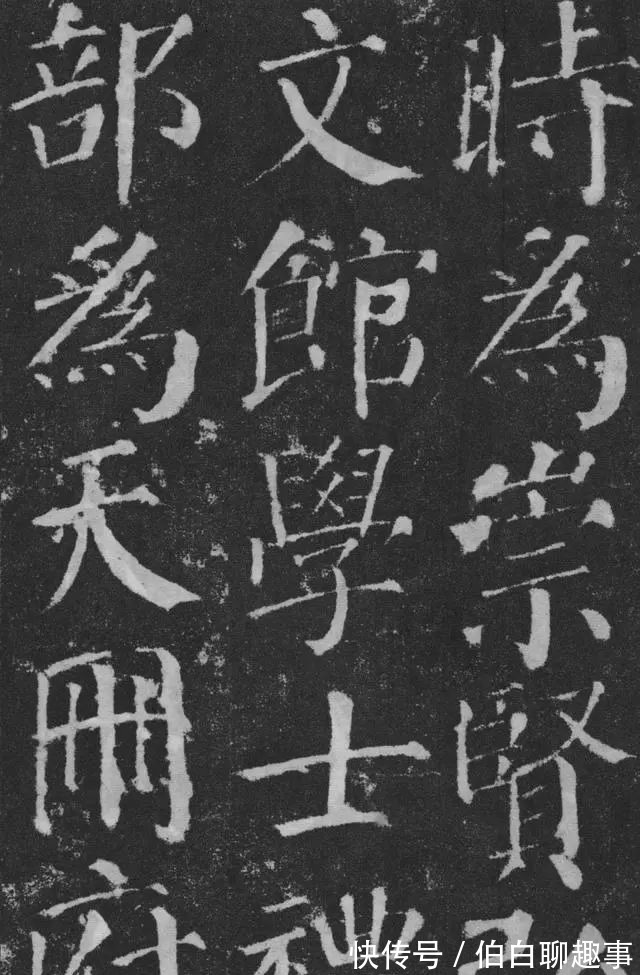 時為崇賢
文館學士禮
部爲天冊府
快传号 / 伯白聊趣事